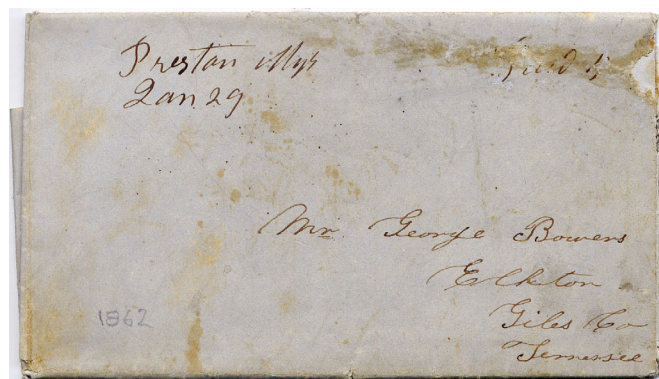 Preston Mys
Jan 29
Mr. George Bowers
Elkton
Giles Co
Tennessee
1862